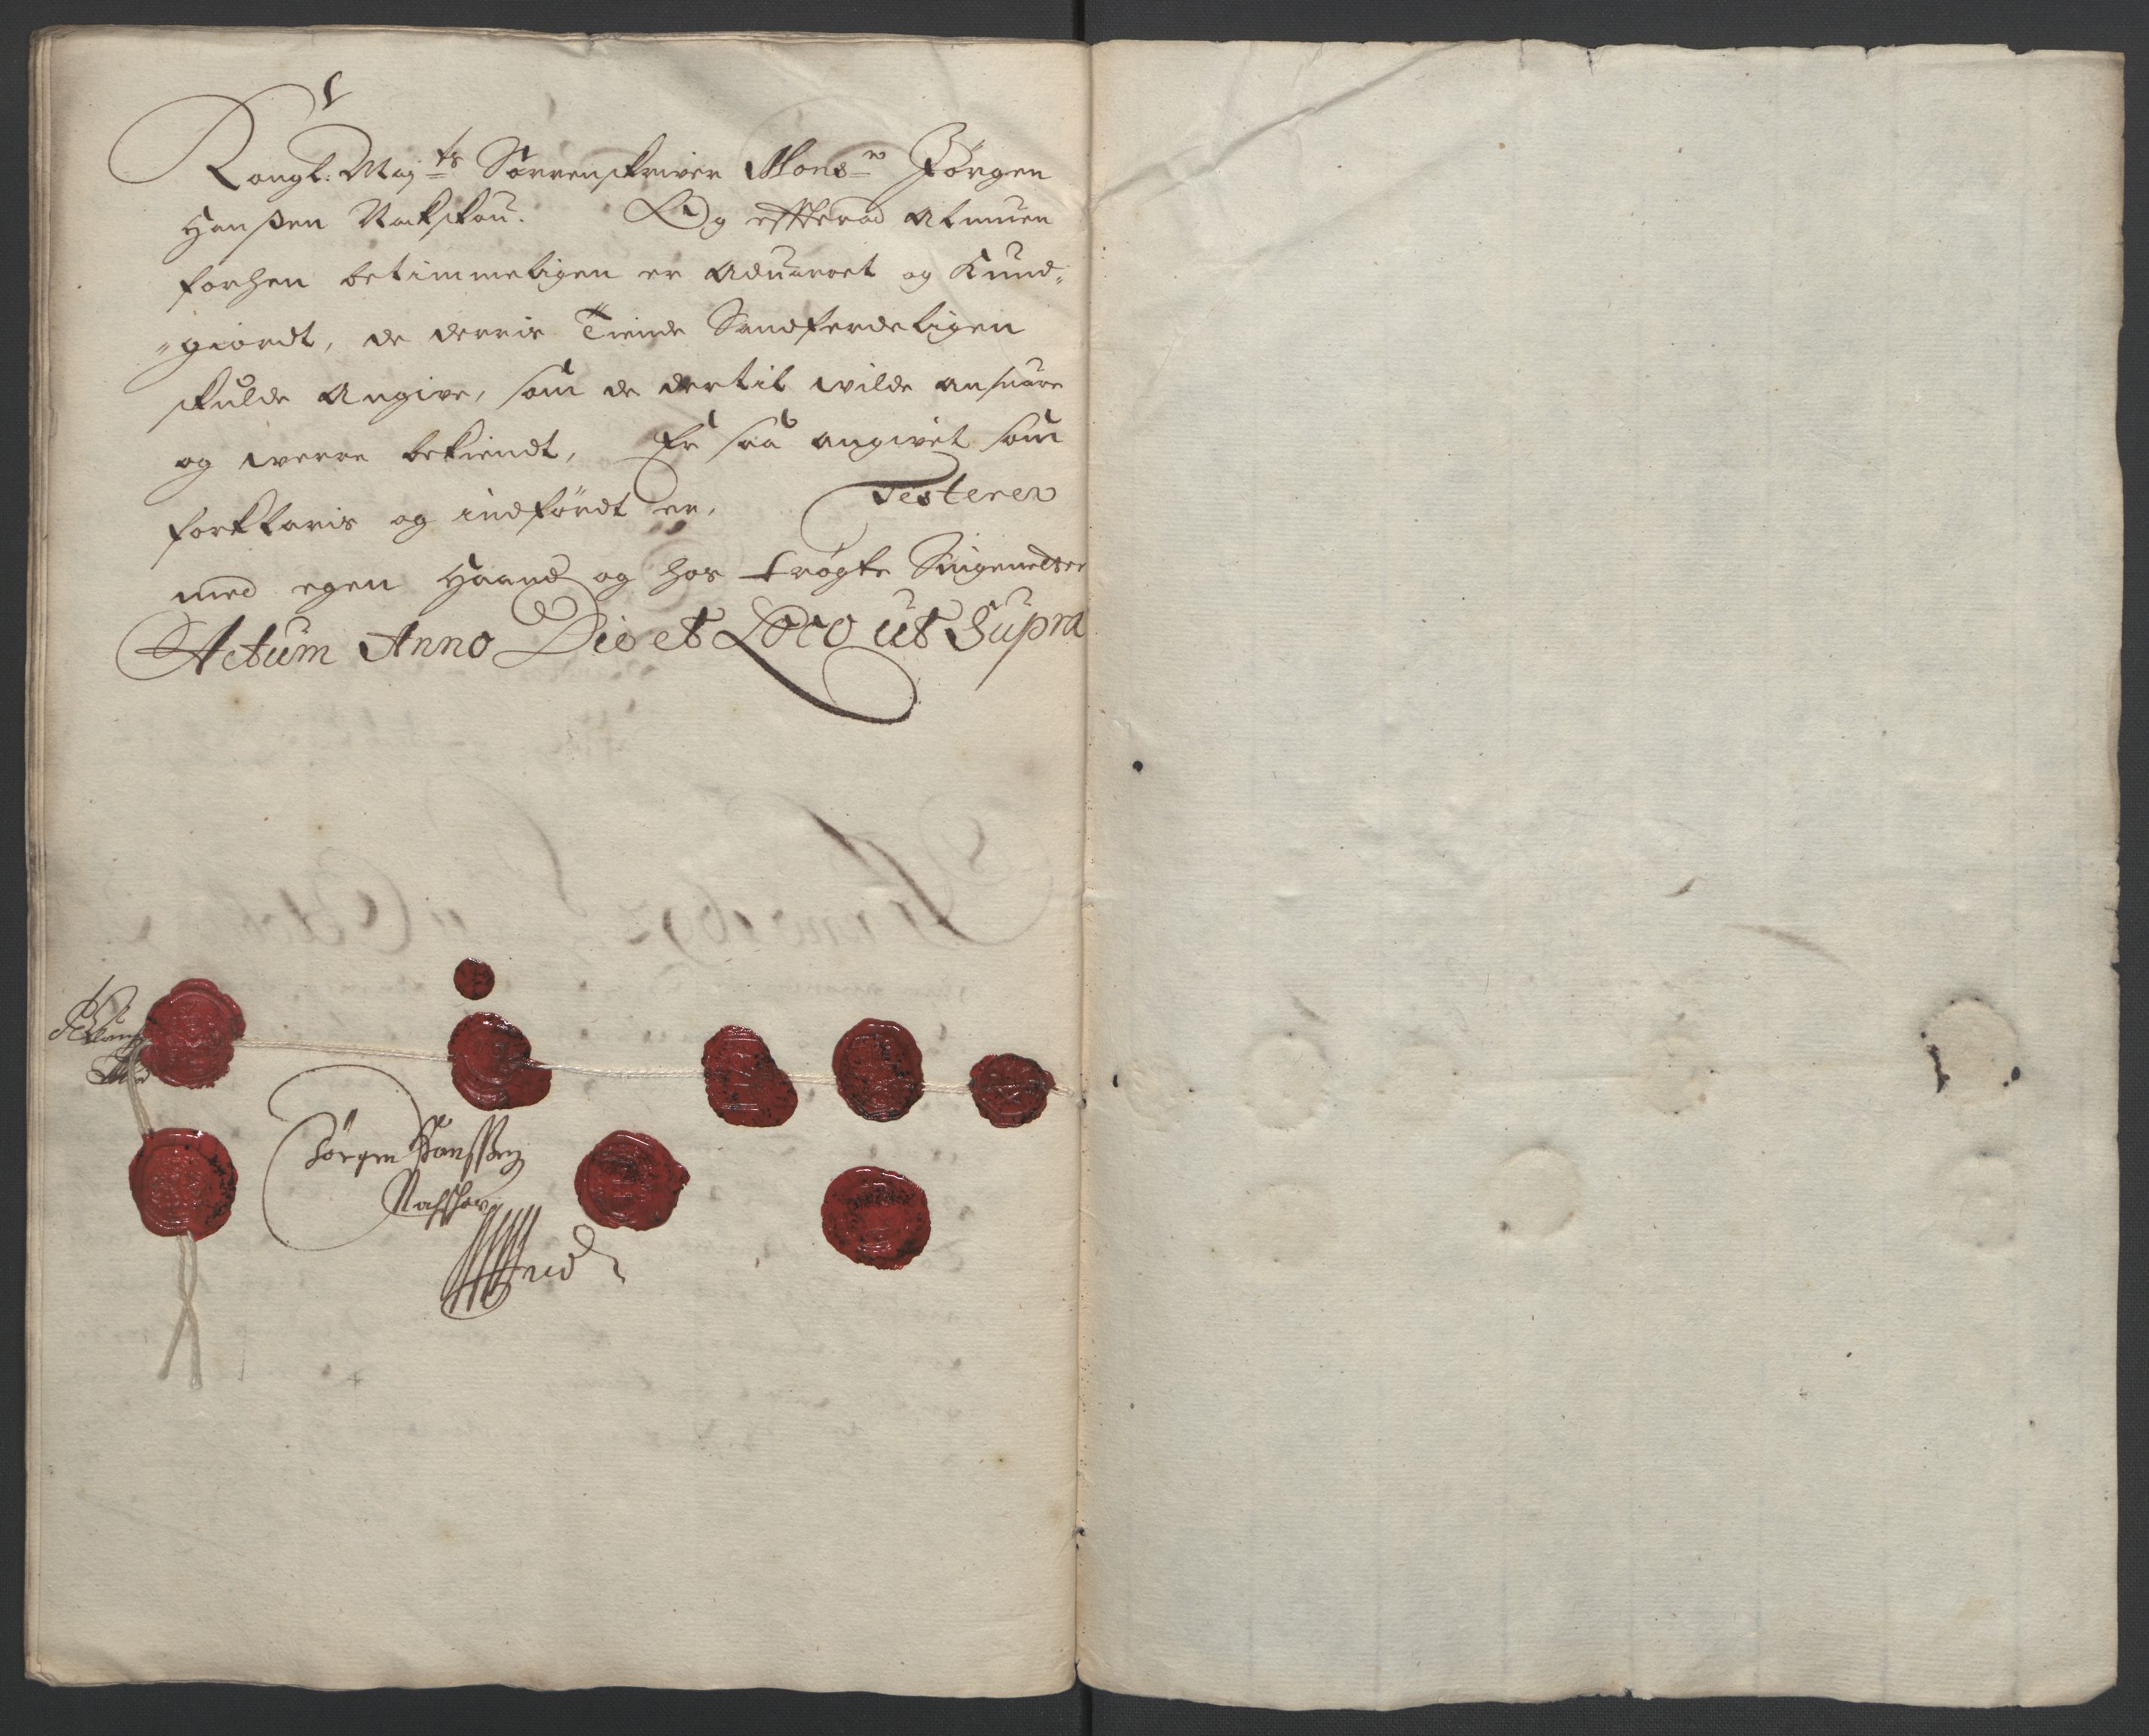 Kongl: Maj:ts Sorrenskriver Mons:r Jørgen
Hanßen Nakskou. Og effterad Almuen
forhen betimmeligen er Aduaret og Kund-
giordt, de derris Tiende Sandferdeligen
skulde Angive, som de dertil wilde ansuare
og werre bekiendt, Er saa angivet som
forklaris og indførdt er, Testerer
med egen Haand og hos trøgte Singenetter
Actum Anno Die et Loco ut Supra
Jørgen Hansßen
Nachschou